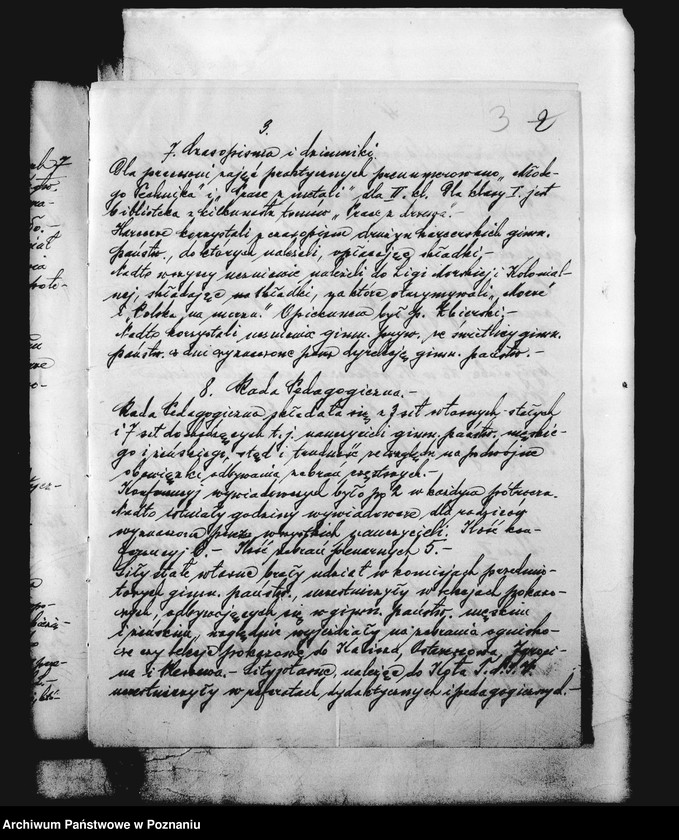 3 2
3.
7. Czasopisma i dzienniki.
Dla pracowni zajęć praktycznych prenumerowano „Młode-
go Technika" i „Prace z metali" dla II. kl. Dla klasy I. jest
biblioteka z kilkunastu tomów „Prac z drzewa".-
Harcerze korzystali z czasopism drużyn harcerskich gimn.
państw., do których należeli, opłacając składki,-
Nadto wszyscy uczniowie należeli do Ligi Morskiej i Kolonial-
nej, składając na składki, za które otrzymywali „Morze"
i „Polska na morzu." Opiekunem był p. Zbierski.-
Nadto korzystali uczniowie gimn. pryw. ze świetlicy gimn.
państw. w dni wyznaczone przez dyrekcję gimn. państw.-
8. Rada Pedagogiczna.-
Rada Pedagogiczna składała się z 3 sił własnych stałych
i 7 sił dochodzących t. j. nauczycieli gimn. państw. męskie-
go i żeńskiego, stąd i trudność ze względu na podwójne
obowiązki odbywania zebrań częstszych.-
Konferencyj wywiadowczych było po 2 w każdym półroczu.
Nadto istniały godziny wywiadowcze dla rodziców
wyznaczone przez wszystkich nauczycieli. Ilość kon-
ferencyj 6.- Ilość zebrań plenarnych 5.-
Siły stałe własne brały udział w komisjach przedmio-
towych gimn. państw., uczestniczyły w lekcjach pokazo-
wych, odbywających się w gimn. państw. męskim
i żeńskim, względnie wyjeżdżały na zebrania ognisko-
we czy lekcje pokazowe do Kalisza, Ostrzeszowa, Kępna
i Pleszewa.- Siły własne, należąc do Koła T.N.S.W.
uczestniczyły w referatach dydaktycznych i pedagogicznych.-
Archiwum Państwowe w Poznaniu